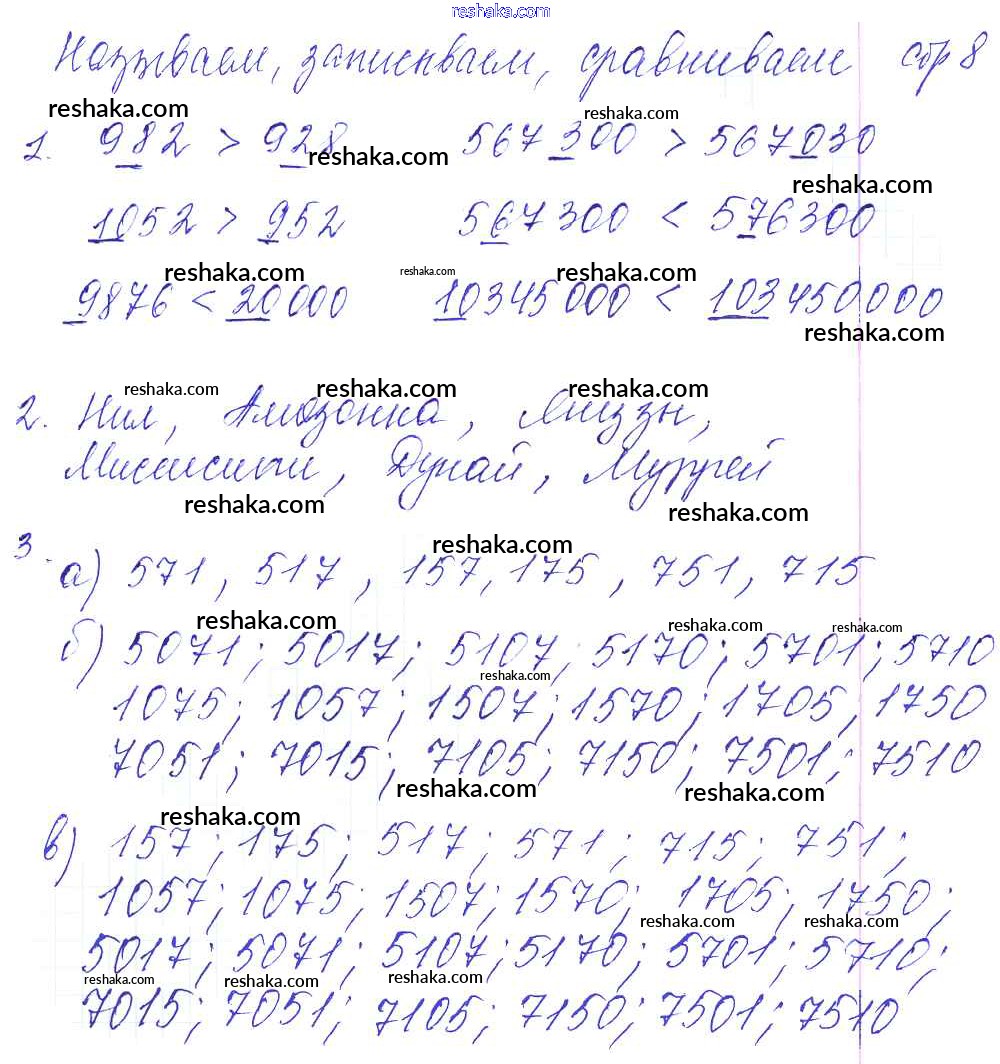 reshaka.com
Называем, записываем, сравниваем стр 8
reshaka.com reshaka.com
1. 982 > 928 567 300 > 567 030
reshaka.com reshaka.com
1052 > 952 567 300 < 576 300
reshaka.com reshaka.com reshaka.com
9876 < 20 000 10 345 000 < 103 450 000
reshaka.com
reshaka.com reshaka.com reshaka.com
2. Нил, Амазонка, Янцзы,
Миссисипи, Дунай, Муррей
reshaka.com reshaka.com
3. reshaka.com
а) 571, 517, 157, 175, 751, 715
reshaka.com reshaka.com reshaka.com
б) 5071; 5017; 5107; 5170; 5701; 5710
reshaka.com
1075; 1057; 1507; 1570; 1705, 1750
7051; 7015; 7105; 7150; 7501; 7510
reshaka.com reshaka.com
reshaka.com
в) 157; 175; 517; 571; 715; 751;
1057; 1075; 1507; 1570; 1705; 1750;
reshaka.com reshaka.com
5017; 5071; 5107; 5170; 5701; 5710;
reshaka.com reshaka.com reshaka.com
7015; 7051; 7105; 7150; 7501; 7510